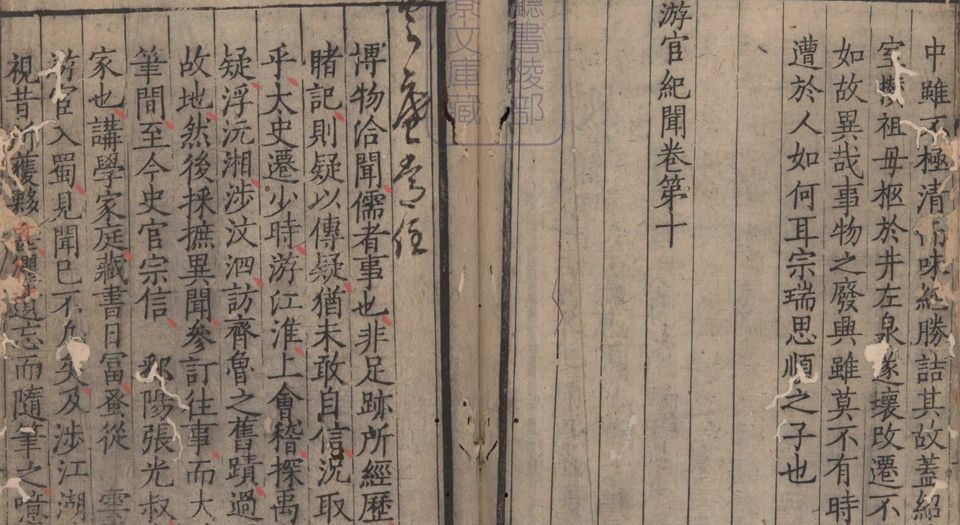 中雖不極清而味絕勝詰其故蓋紹
祖母柩於井左泉遂壞改遷不
如故異哉事物之廢興雖莫不有時
遭於人如何耳宗瑞思順之子也
游宦紀聞卷第十
聽書陵部
文庫藏
博物洽聞儒者事也非足跡所經歷
睹記則疑以傳疑猶未敢自信況取
乎太史遷少時游江淮上會稽探禹
疑浮沅湘涉汶泗訪齊魯之舊蹟過
故地然後採摭異聞參訂往事而大
筆間至今史官宗信 鄱陽張光叔
家也講學家庭藏書日富蚤從 雲
游宦入蜀見聞已不為及涉江湖
視昔所獲夥甚懼遺忘而隨筆之噫